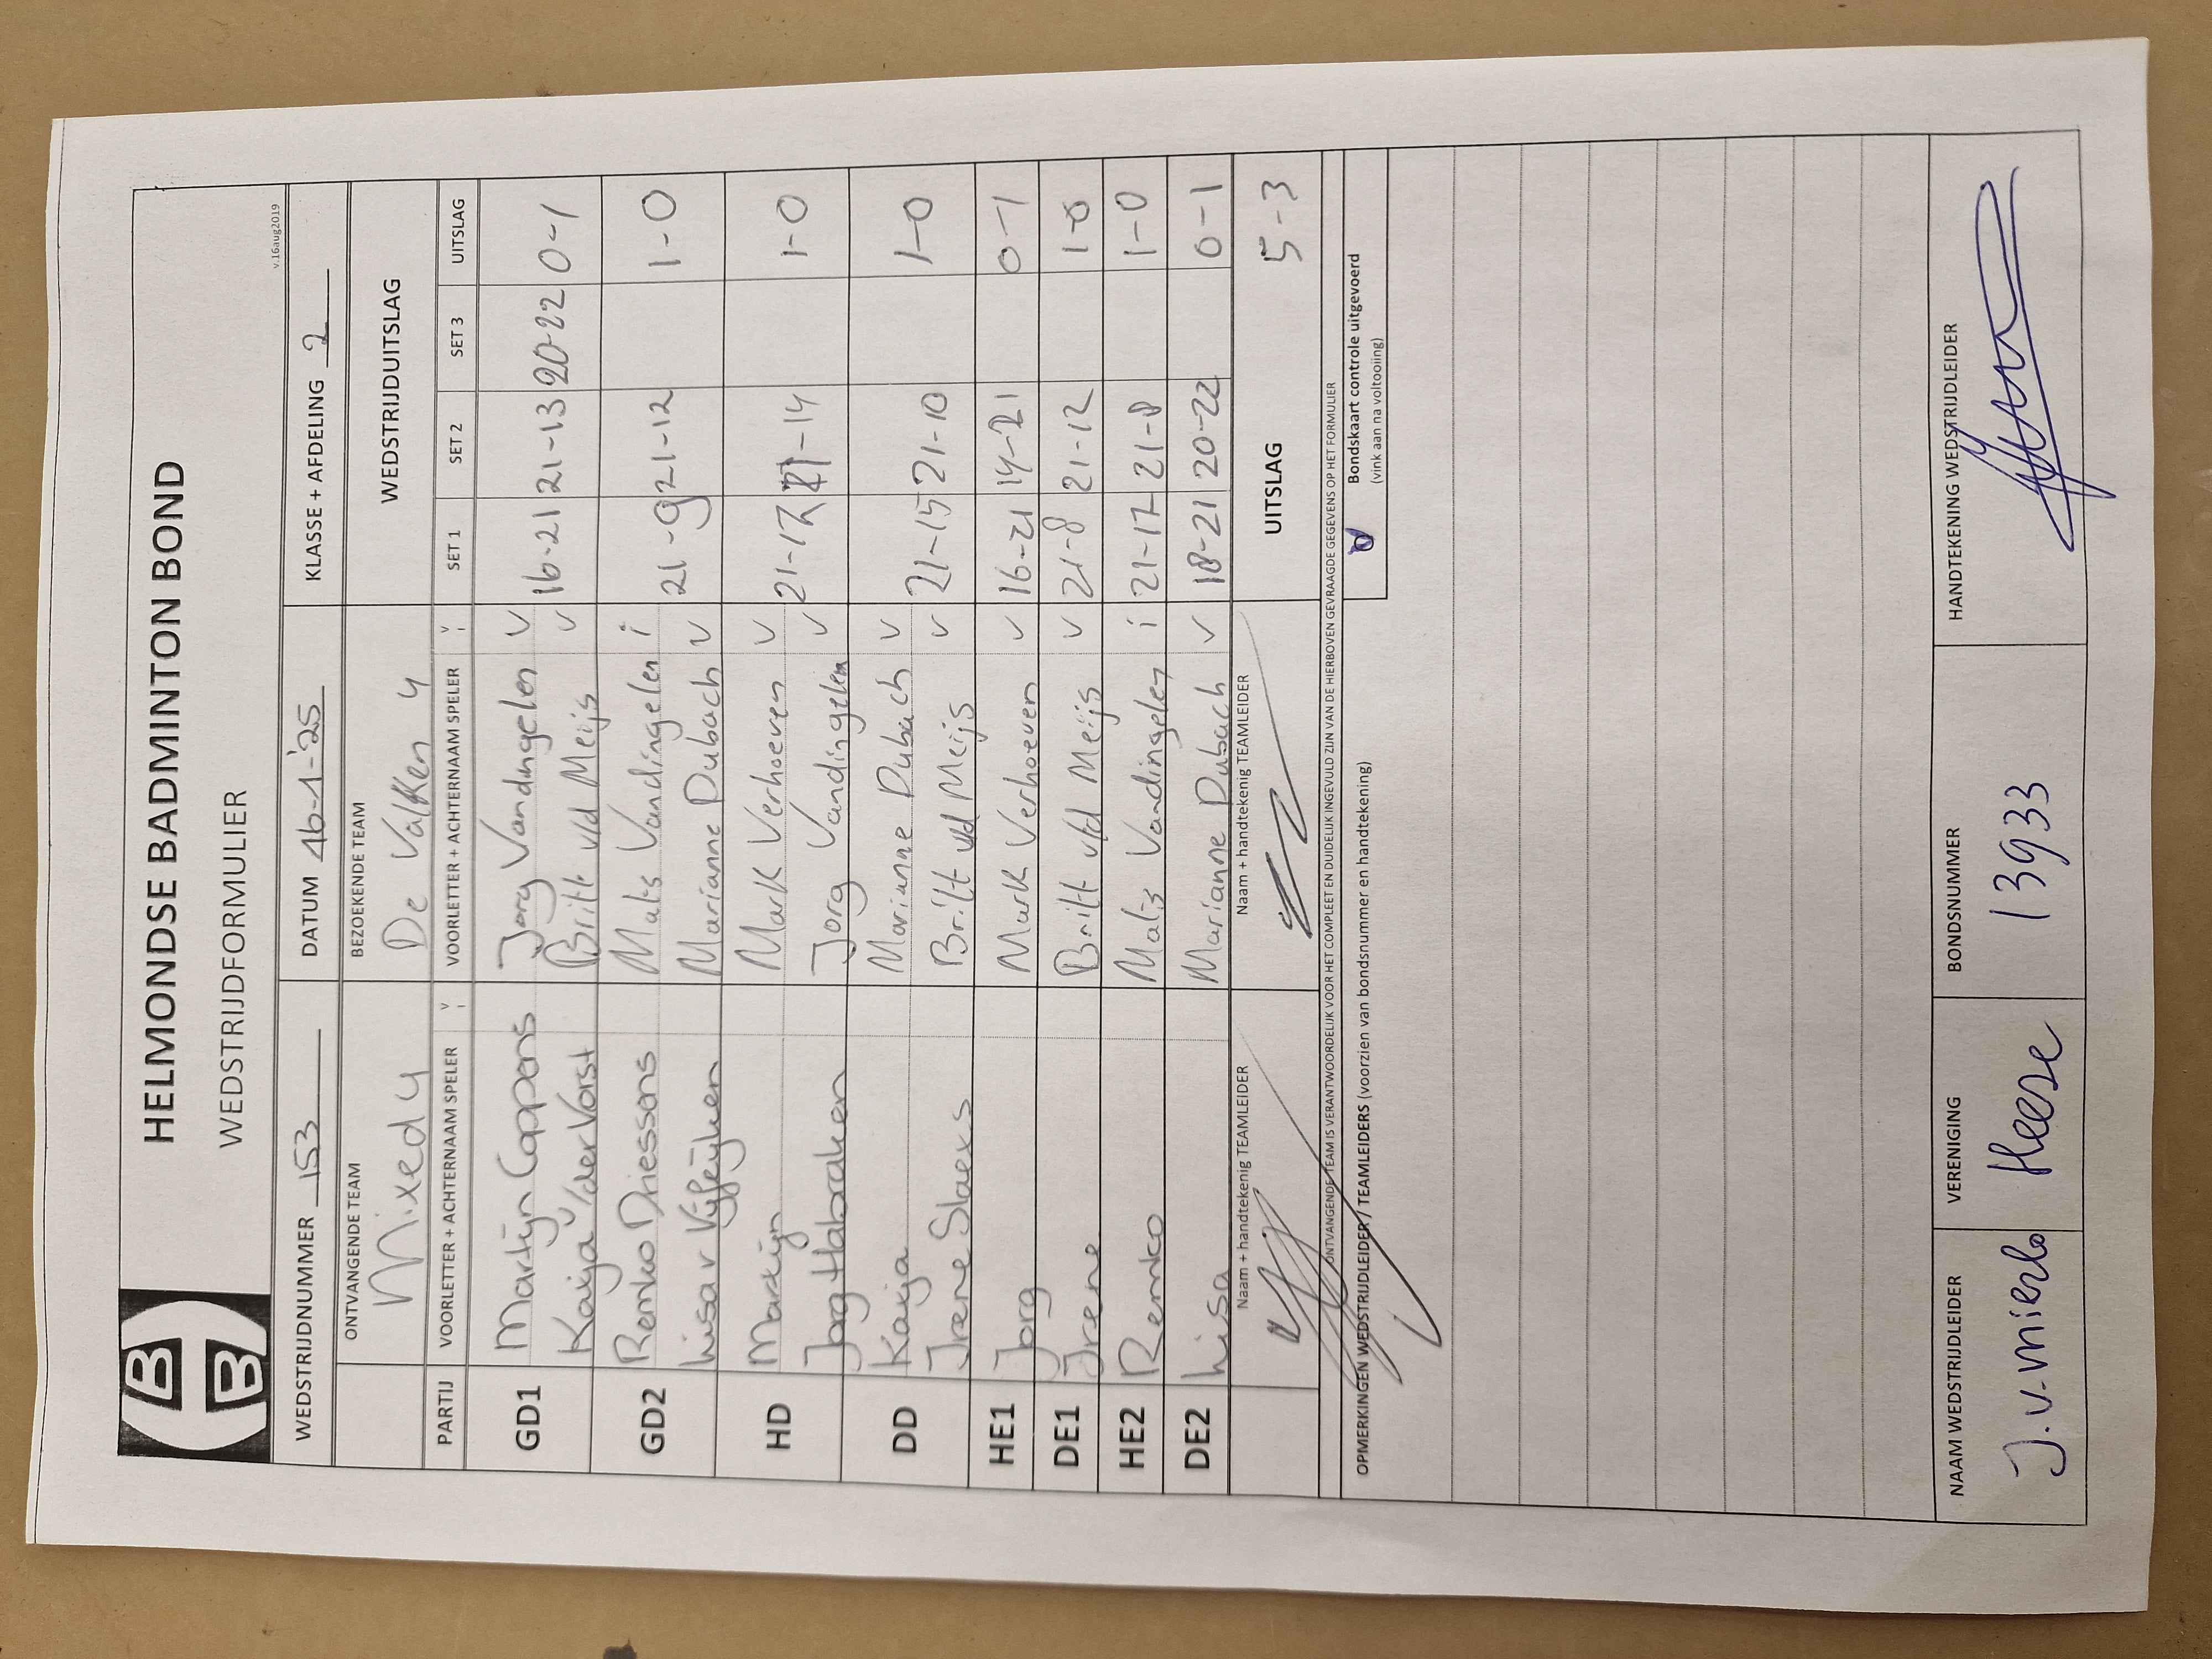 HBB
HELMONDSE BADMINTON BOND
WEDSTRIJDFORMULIER
v.16aug2019
WEDSTRIJDNUMMER 153 DATUM 16-1-'25 KLASSE + AFDELING 2
ONTVANGENDE TEAM BEZOEKENDE TEAM WEDSTRIJDUITSLAG
Mixed 4 De Valken 4
PARTIJ VOORLETTER + ACHTERNAAM SPELER V I VOORLETTER + ACHTERNAAM SPELER V I SET 1 SET 2 SET 3 UITSLAG
GD1 Martijn Coppens Jorg Vandingelen v 16-21 21-13 20-22 0-1
Kaija v/der Vorst Britt v/d Meijs v
GD2 Remko Driessens Mats Vandingelen i 21-9 21-12 1-0
Lisa v Vijfeijken Marianne Dubach v
HD Martijn Mark Verhoeven v 21-17 21-14 1-0
Jorg Habraken Jorg Vandingelen v
DD Kaija Marianne Dubach v 21-15 21-10 1-0
Irene Slaets Britt v/d Meijs v
HE1 Jorg Mark Verhoeven v 16-21 14-21 0-1
DE1 Irene Britt v/d Meijs v 21-8 21-12 1-0
HE2 Remko Mats Vandingelen i 21-17 21-8 1-0
DE2 Lisa Marianne Dubach v 18-21 20-22 0-1
Naam + handtekenig TEAMLEIDER Naam + handtekenig TEAMLEIDER UITSLAG 5-3
ONTVANGENDE TEAM IS VERANTWOORDELIJK VOOR HET COMPLEET EN DUIDELIJK INGEVULD ZIJN VAN DE HIERBOVEN GEVRAAGDE GEGEVENS OP HET FORMULIER
OPMERKINGEN WEDSTRIJDLEIDER / TEAMLEIDERS (voorzien van bondsnummer en handtekening)
Bondskaart controle uitgevoerd
(vink aan na voltooiing)
NAAM WEDSTRIJDLEIDER VERENIGING BONDSNUMMER HANDTEKENING WEDSTRIJDLEIDER
J. v. Mierlo Heeze 13933